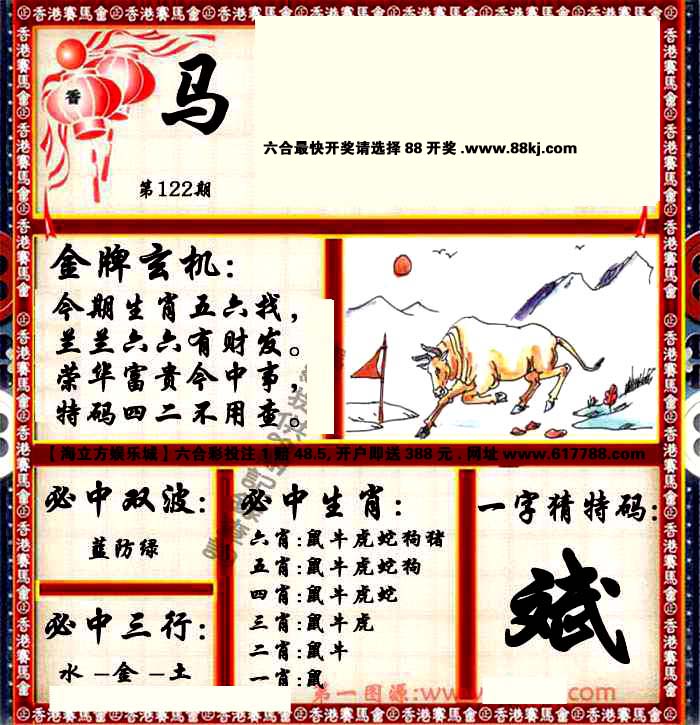 香港賽馬會
香
马
六合最快开奖请选择 88 开奖 .www.88kj.com
第122期
金牌玄机:
今期生肖五六找,
兰兰六六有财发。
荣华富贵今中事,
特码四二不用查。
【海立方娱乐城】六合彩投注 1 赔 48.5, 开户即送 388 元 . 网址 www.617788.com
必中双波:
蓝防绿
必中三行:
水 –金 –土
必中生肖:
六肖:鼠牛虎蛇狗猪
五肖:鼠牛虎蛇狗
四肖:鼠牛虎蛇
三肖:鼠牛虎
二肖:鼠牛
一肖:鼠
一字猜特码:
斌
第一图源:www. com